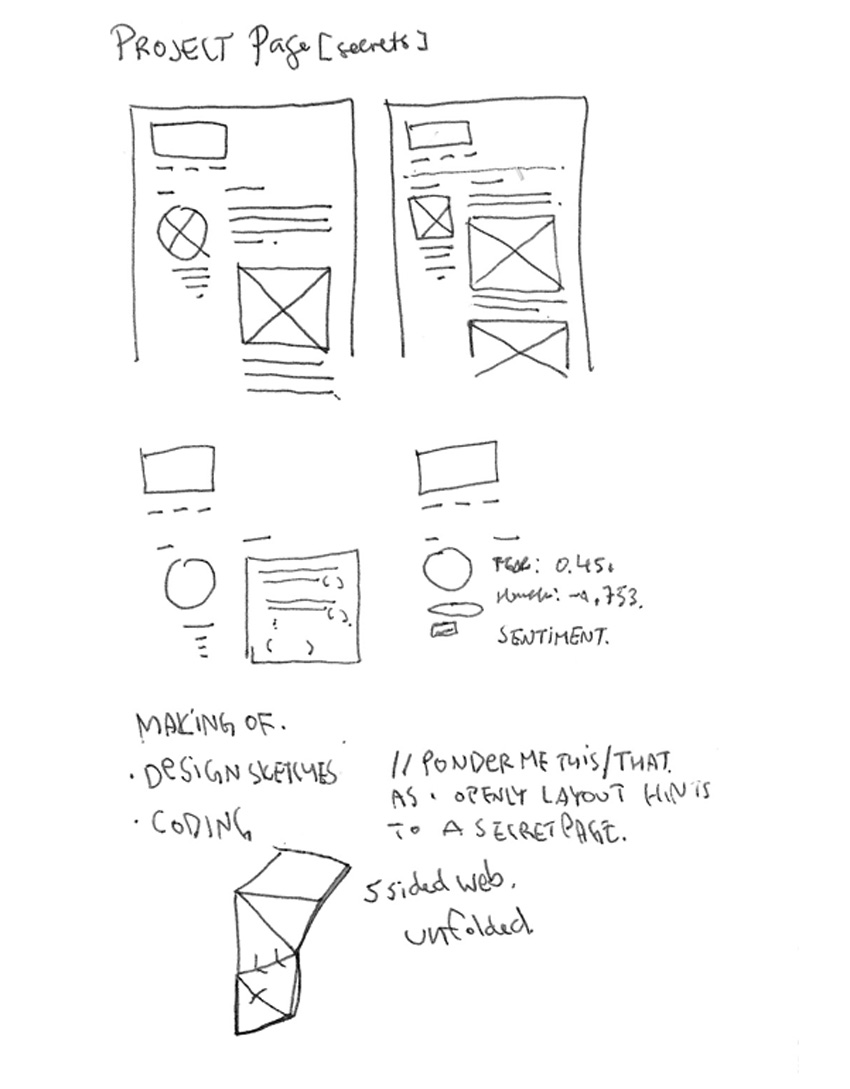 PROJECT Page [secrets]
FEAR: 0.45
: -0,753.
SENTIMENT.
MAKING OF.
· DESIGN SKETCHES
· CODING
// PONDER ME THIS/THAT.
AS · OPENLY LAYOUT HINTS
TO A SECRET PAGE.
5 sided web.
unfolded.